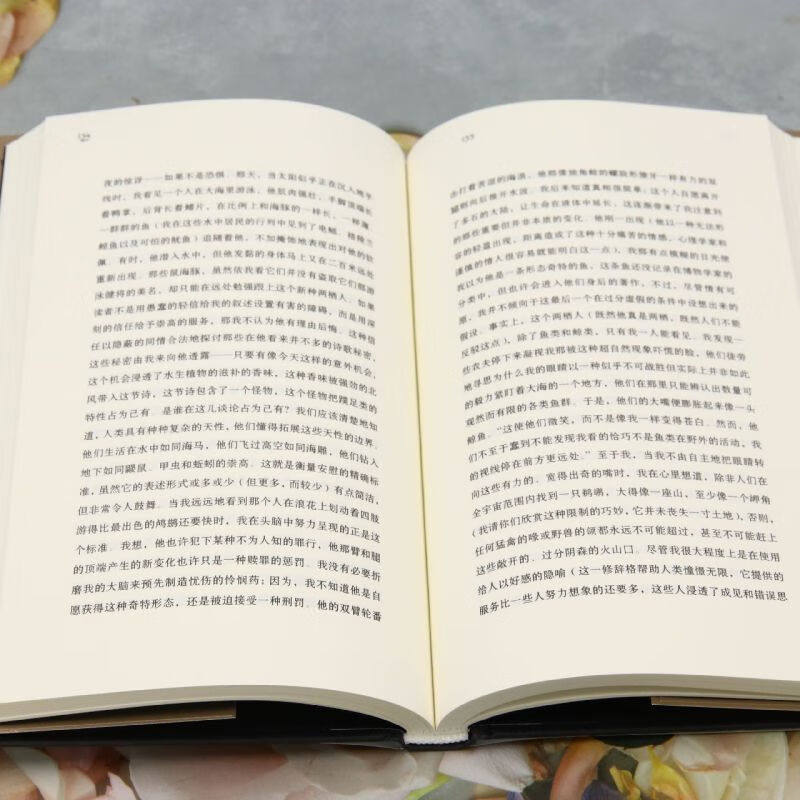 154
夜的惊讶——如果不是恐惧．那天，当太阳似乎正在沉入地平
线时，我看见一个人在大海里游泳，他肌肉强壮，手脚顶端长
着鸭掌，后背长着鳍片，在比例上和海豚的一样长，一样薄．
一群群的鱼（我在这些水中居民的行列中见到了电鳐、格陵兰
鲸鱼以及可怕的鱿鱼）追随着他，不加掩饰地表现出对他的钦
佩．有时，他潜入水中，但他发黏的身体马上又在二百米远处
重新出现．那些鼠海豚，虽然依我看它们并没有盗取它们那游
泳健将的美名，却只能在远处勉强跟上这个新种两栖人．如果
读者不是用愚蠢的轻信给我的叙述设置有害的障碍，而是用深
刻的信任给予崇高的服务，那我不认为他有理由后悔．这种信
任以隐蔽的同情合法地探讨那些在他看来并不多的诗歌秘密，
这些秘密由我来向他透露——只要有像今天这样的意外机会，
这个机会浸透了水生植物的滋补的香味，这种香味被强劲的北
风带入这节诗，这节诗包含了一个怪物，这个怪物把蹼足类的
特性占为己有．是谁在这儿谈论占为己有？我们应该清楚地知
道，人类具有种种复杂的天性，他们懂得拓展这些天性的边界．
他们生活在水中如同海马，他们飞过高空如同海雕，他们钻入
地下如同鼹鼠、甲虫和蚯蚓的崇高．这就是衡量安慰的精确标
准，虽然它的表述形式或多或少（但更多，而较少）有点简洁，
但非常令人鼓舞．当我远远地看到那个人在浪花上划动着四肢
游得比最出色的鸬鹚还要快时，我在头脑中努力呈现的正是这
个标准．我想，他也许犯下某种不为人知的罪行，他那臂和腿
的顶端产生的新变化也许只是一种赎罪的惩罚．我没有必要折
磨我的大脑来预先制造忧伤的怜悯药；因为，我不知道他是自
愿获得这种奇特形态，还是被迫接受一种刑罚．他的双臂轮番
155
击打着表湿的海浪，他那像独角鲸的螺旋形獠牙一样有力的双
腿朝向后推开水波．我后来知道真相很简单：这个人自愿离开
了多石的大陆，让生命在液体中延长，这逐渐带来了我注意到
的那些重要但并非本质的变化．他刚一出现（他以一种无法形
容的轻盈出现，距离造成了这种十分痛苦的情感，心理学家和
谨慎的情人很容易就能明白这一点），我那有点模糊的目光使
我以为他是一条形态奇特的鱼，这条鱼还没记录在博物学家的
分类中，但也许会进入他们身后的著作，不过，尽管情有可
原，我并不倾向于这最后一个在过分虚假的条件中设想出来的
假设．事实上，这个两栖人（既然他真是两栖，既然人们不能
反驳这点），除了鱼类和鲸类，只有我一人能看见．我发现一
些农夫停下来凝视我那被这种超自然现象吓慌的脸，他们徒劳
地寻思为什么我的眼睛以一种似乎不可战胜但实际上并非如此
的毅力紧盯着大海的一个地方，他们在那里只能辨认出数量可
观然而有限的各类鱼群．于是，他们的大嘴便膨胀起来像一头
鲸鱼．“这使他们微笑，而不是像我一样变得苍白．然而，他
们不至于蠢到不能发现我看的恰巧不是鱼类在野外的活动，我
的视线停在前方更远处．”至于我，当我不由自主地把眼睛转
向这些有力的．宽得出奇的嘴时，我在心里想道，除非人们在
全宇宙范围内找到一只鹈鹕，大得像一座山，至少像一个岬角
（我请你们欣赏这种限制的巧妙，它并未丧失一寸土地），否则，
任何猛禽的喙或野兽的颌都永远不可能超过，甚至不可能赶上
这些敞开的．过分阴森的火山口．尽管我很大程度上是在使用
给人以好感的隐喻（这一修辞格帮助人类憧憬无限，它提供的
服务比一些人努力想象的还要多，这些人浸透了成见和错误思